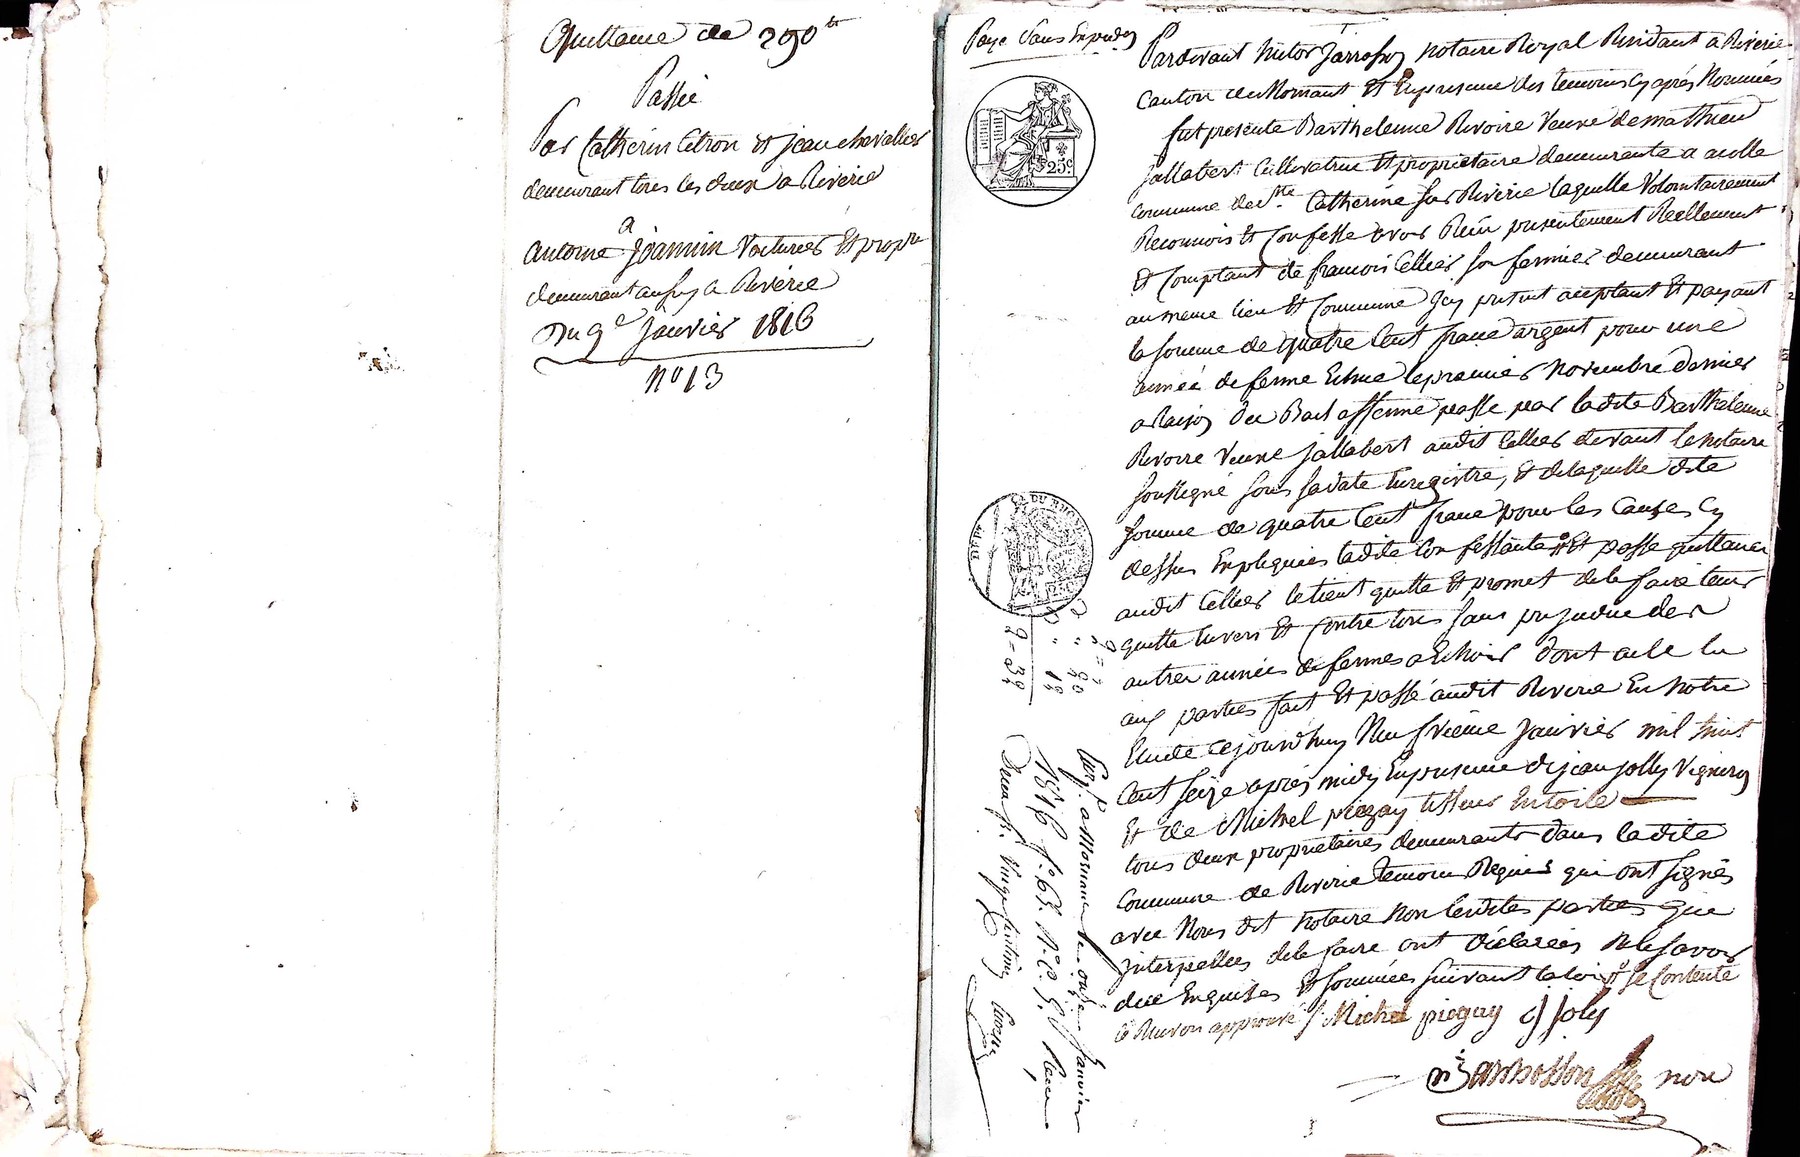 Quittance de 290 tt
Passée
Par Catherin Citron et jean chevallier
demeurant tous les deux a Riverie
a
antoine Joannin voiturier Et propre
demeurant aussy a Riverie
Du 9e Janvier 1816
no 13
Paye Sans Expedon
Pardevant Nector Jarrosson notaire Royal Residant a Riverie
Canton de Mornant Et En presence des temoins Cy après Nommés
fut presente Barthelemie Rivoire Veuve de mathieu
Jallabert Cultivatrice Et proprietaire demeurante a
commune de Ste Catherine sur Riverie laquelle Volontairement
Reconnois Et Confesse avoir Recu presentement Reellement
Et Comptant de francois Cellier son fermier demeurant
au meme lieu Et Commune Icy present acceptant Et payant
la somme de quatre Cent franc argent pour une
année de ferme Echue le premier Novembre dernier
a Raison du Bail afferme passé par la dite Barthelemie
Rivoire Veuve Jallabert audit Cellier devant le Notaire
soussigné sous sa date Enregistré, Et de laquelle dite
somme de quatre Cent franc pour les Causes Cy
dessus Expliquées la dite Confessante Et passe quittance
audit Cellier le tient quitte Et promet de le faire tenir
quitte Envers Et Contre tous sans prejudice des
autres années de fermes a Echoir dont acte lu
aux parties fait Et passé audit Riverie En notre
Etude Cejourd'huy Neufvieme Janvier mil huit
Cent seize après midy En presence de jean Jolly Vigneron
Et de Michel piegay tisseur En toile
tous deux proprietaires demeurants dans la dite
Commune de Riverie temoins Requis qui ont signés
avec Nous dit Notaire Non lesdites parties que
Interpellées de le faire ont déclarées Ne le savoir
due Enquises Et sommées suivant la loi se Contente
le Renvoi approuvé Michel piegay j joly
Jarrosson nore
25c
DEPT DU RHONE
2 " 20
" " 12
2 = 32
Enrg.t a Mornant le onze Janvier
1816 f.o 65 R.o C. 5. Reçu
Deux f. Vingt Centimes